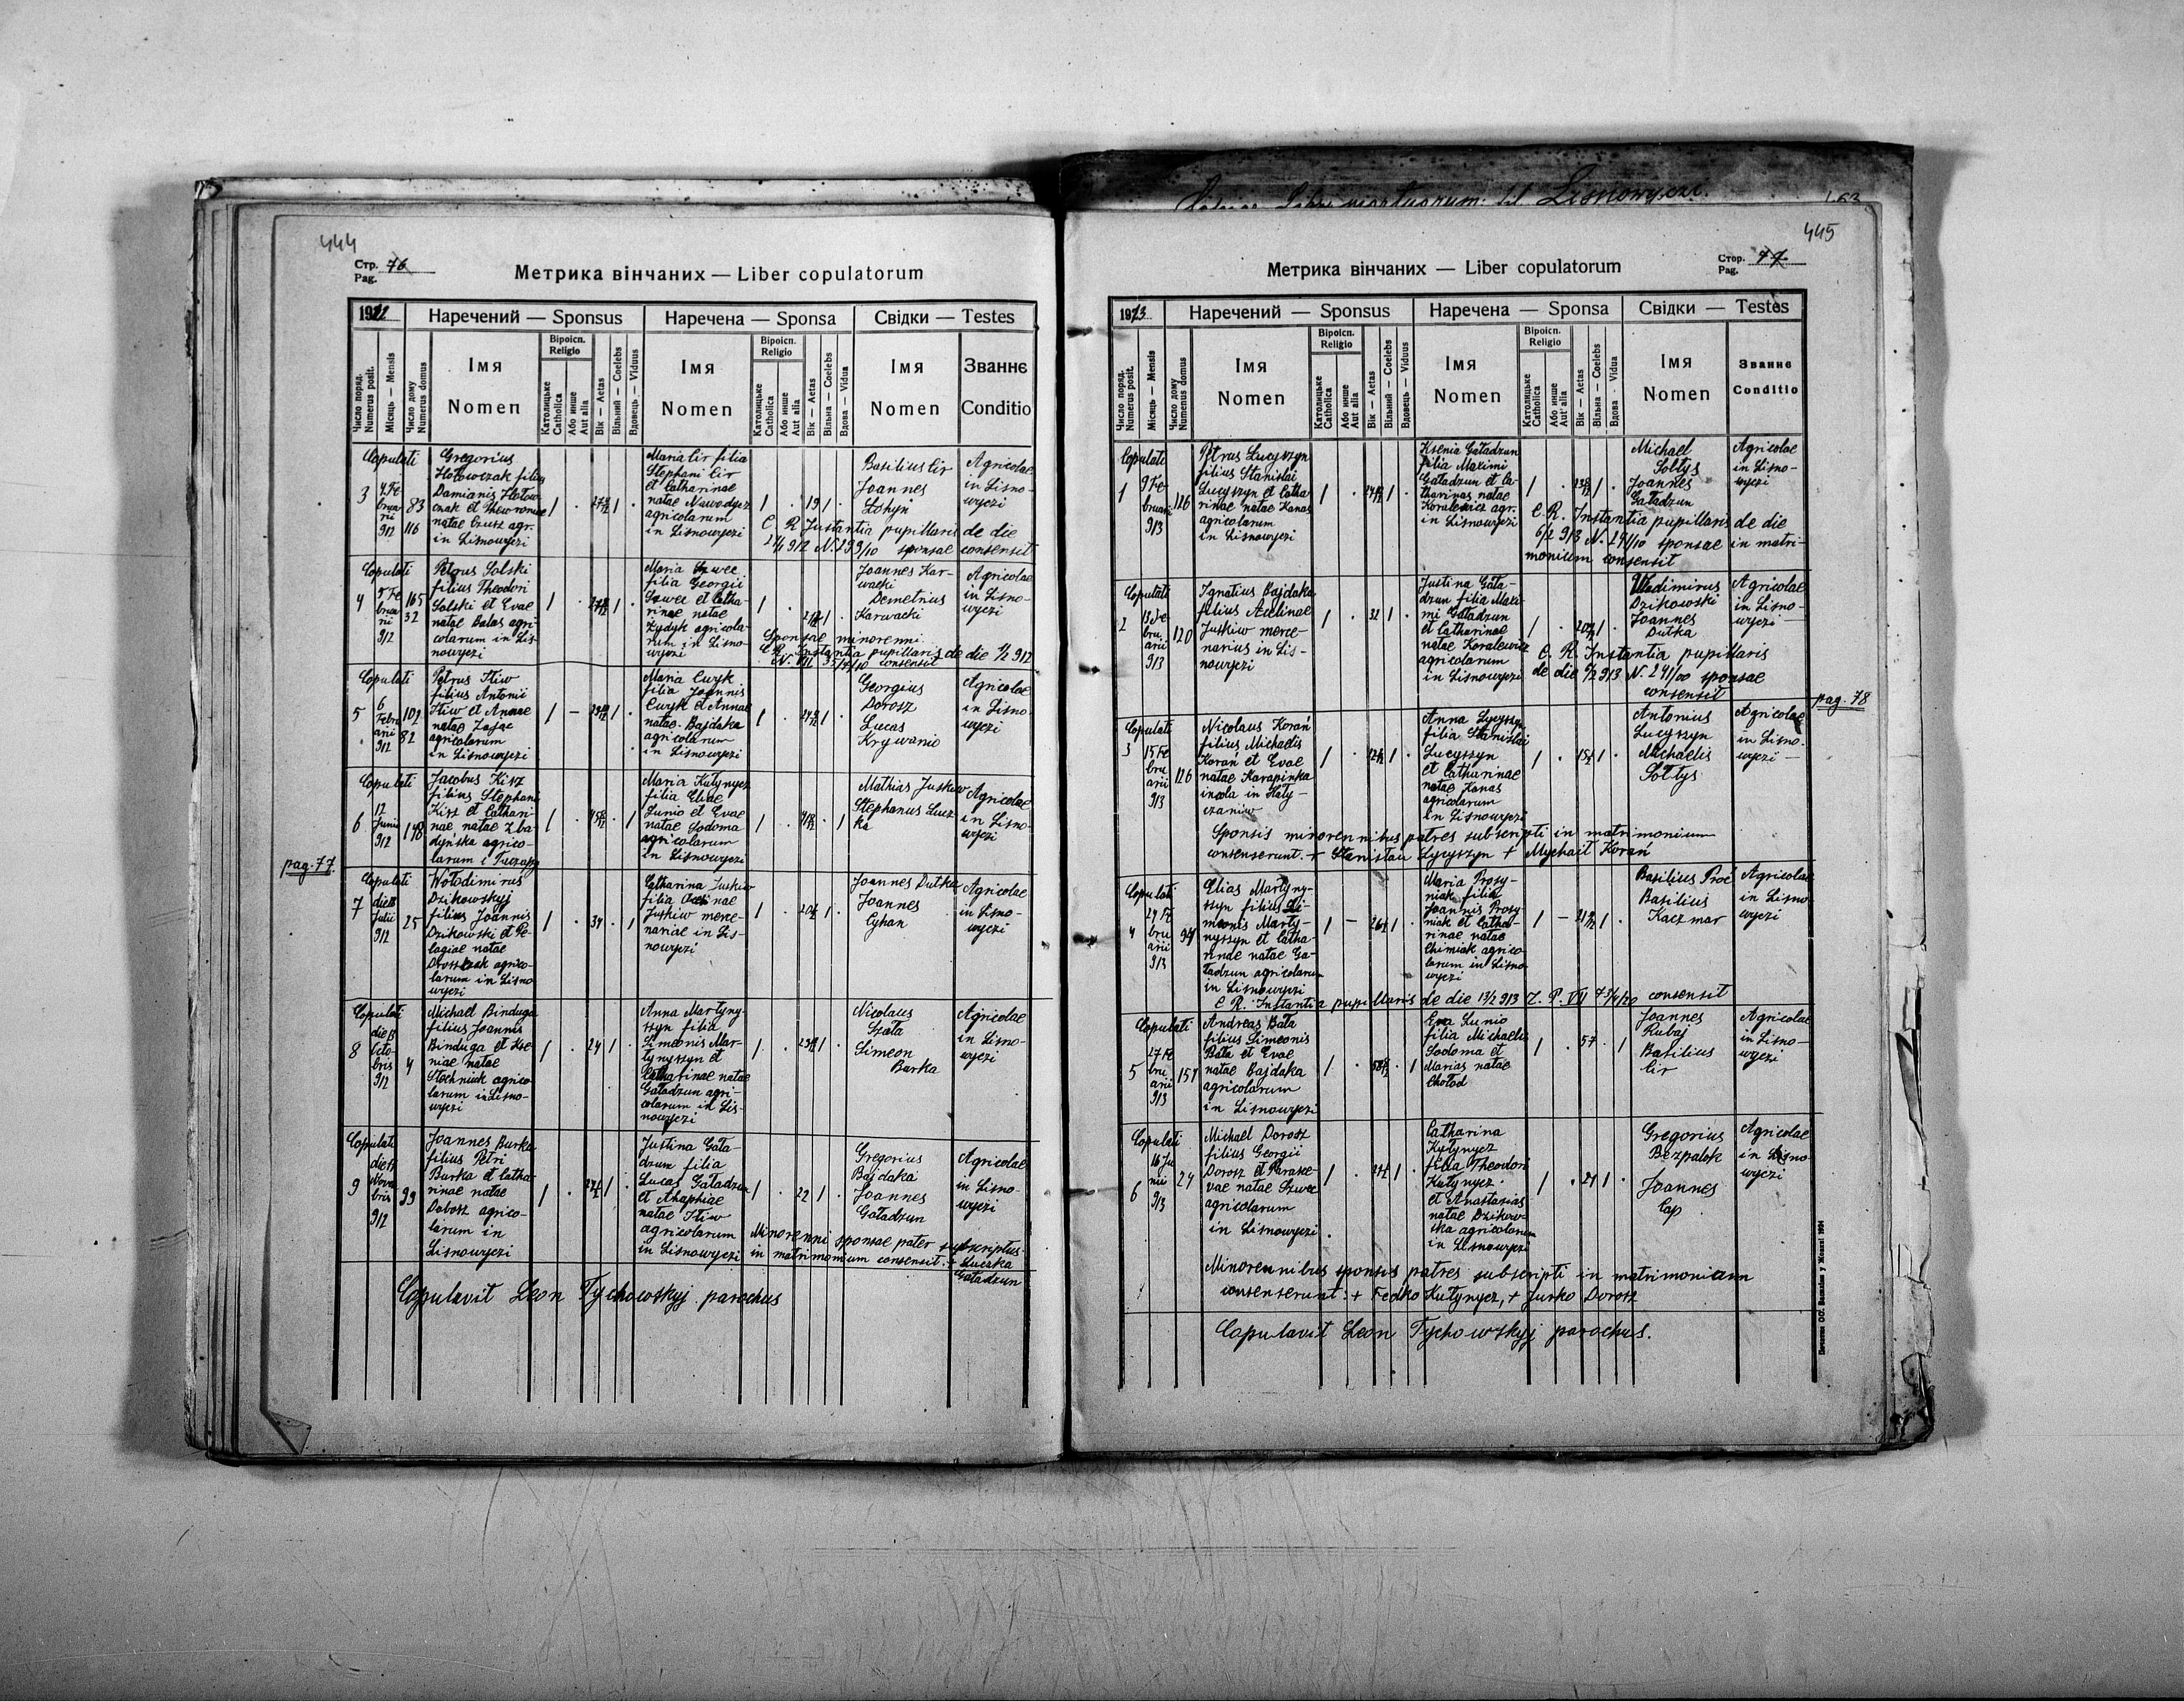 444
Стр. 76
Pag.
Метрика вінчаних — Liber copulatorum
1912
Наречений — Sponsus
Наречена — Sponsa
Свідки — Testes
Число поряд.
Numerus posit.
Місяць — Mensis
Число дому
Numerus domus
Імя
Nomen
Віроісп.
Religio
Католицьке
Catholica
Або инше
Aut alia
Вік — Aetas
Вільний — Coelebs
Вдовець — Viduus
Імя
Nomen
Віроісп.
Religio
Католицьке
Catholica
Або инше
Aut alia
Вік — Aetas
Вільна — Coelebs
Вдова — Vidua
Імя
Nomen
Званнє
Conditio
Copulati
3
4 Fe
brua
rii
912
83
116
Gregorius
Hołowczak filius
Damianis Hołow
czak et
natae agr.
in Lisnowyczi
Maria Cir filia
Stephani Cir
et Catharinae
natae
agricolarum
in Lisnowyczi
19
Basilius Cir
Joannes
Łohyn
Agricolae
in Lisno-
wyczi
C. R. Instantia pupillaris de die
912 N. 299/10 sponsae consensit
Copulati
4
5 Fe
brua
rii
912
165
32
Petrus Solski
filius Theodori
Solski et Evae
natae Balas agri-
colarum in Lis-
nowyczi
Maria Szwec
filia Georgii
Szwec et Catha-
rinae natae
Żydyk agricola-
rum in Lisno-
wyczi
Joannes Kar-
wacki
Demetrius
Karwacki
Agricolae
in Lisno-
wyczi
Sponsae minorenni
C. R. Instantia pupillaris de die 1/2 912
consensit
Copulati
5
6
Febru
arii
912
102
82
Petrus Iliw
filius Antonii
Iliw et Annae
natae Zajac
agricolarum
in Lisnowyczi
Maria Cwyk
filia Joannis
Cwyk et Annae
natae Bajdaka
agricolarum
in Lisnowyczi
Georgius
Dorosz
Lucas
Krywanio
Agricolae
in Lisno
wyczi
Copulati
6
12
Junii
912
148
Jacobus Kisz
filius Stephani
Kisz et Cathari-
nae natae Zba-
dyńska agrico-
larum
Maria Kutynycz
filia Eliae
Łunio et Evae
natae Sodoma
agricolarum
in Lisnowyczi
Mathias Juskiw
Stephanus Łuc
ka
Agricolae
in Lisno-
wyczi
pag. 77
Copulati
7
die 8
Julii
912
25
Wołodimirus
Dzikowskyj
filius Joannis
Dzikowski et Pe-
lagiae natae
agrico-
larum in Lisno
wyczi
34
Catharina Juskiw
filia
Juskiw merce-
nariae in Lis-
nowyczi
Joannes Dutka
Joannes
Cyhan
Agricolae
in Lisno-
wyczi
Copulati
8
die
Octo-
bris
912
4
Michael Binduga
filius Joannis
Binduga et Kse-
niae natae
Stechniak agrico
larum in Lisno-
wyczi
24
Anna Martyny-
szyn filia
Simeonis Mar-
tynyszyn et
Catharinae natae
Gaładzun agri-
colarum in Lis-
nowyczi
Nicolaus
Szała
Simeon
Burka
Agricolae
in Lisno-
wyczi
Copulati
9
die
Novem
bris
912
99
Joannes Burka
filius Petri
Burka et Catha-
rinae natae
Dobosz agrico-
larum in
Lisnowyczi
Justina Gała-
dzun filia
Lucas Gaładzun
et Ahaphiae
natae Iliw
agricolarum
in Lisnowyczi
22
Gregorius
Bajdaka
Joannes
Gaładzun
Agricolae
in Lisno-
wyczi
Minorenni sponsae pater subscriptus
in matrimonium consensit + Lucska
Gaładzun
Copulavit Leon Tychowskyj parochus
Lisnowyczi.
445
Стор. 77
Pag.
Метрика вінчаних — Liber copulatorum
1913
Наречений — Sponsus
Наречена — Sponsa
Свідки — Testes
Число поряд.
Numerus posit.
Місяць — Mensis
Число дому
Numerus domus
Імя
Nomen
Віроісп.
Religio
Католицьке
Catholica
Або инше
Aut alia
Вік — Aetas
Вільний — Coelebs
Вдовець — Viduus
Імя
Nomen
Віроісп.
Religio
Католицьке
Catholica
Або инше
Aut' alia
Вік — Aetas
Вільна — Coelebs
Вдова — Vidua
Імя
Nomen
Званнє
Conditio
Copulati
1
9 Fe-
bruarii
913
126
Petrus Łucyszyn
filius Stanislai
Łucyszyn et Catha
rinae natae Kanas
agricolarum
in Lisnowyczi
Ksenia Gaładzun
filia Maximi
Gaładzun et Ca-
tharinas natae
Koralewicz agr.
in Lisnowyczi
Michael
Sołtys
Joannes
Gaładzun
Agricolae
in Lisno-
wyczi
C. R. Instantia pupillaris de die
6/2 913 N. 241/10 sponsae in matri-
monium consensit
Copulati
2
13 Fe
bru
arii
913
120
Ignatius Bajdaka
filius Acelinae
Juskiw merce-
narius in Lis-
nowyczi
32
Justina Gała-
dzun filia Maxi-
mi Gaładzun
et Catharinae
natae Koralewicz
agricolarum
in Lisnowyczi
Wladimirus
Dzikowski
Joannes
Dutka
Agricolae
in Lisno-
wyczi —
C. R. Instantia pupillaris
de die 6/2 913 N. 241/10 sponsae
consensit
pag. 78
Copulati
3
15 Fe
bru
arii
913
126
Nicolaus Korań
filius Michaelis
Korań et Evae
natae Karapinka
incola in Haty-
czaniw
Anna Łycyszyn
filia Stanislai
Łucyszyn
et Catharinae
natae Kanas
agricolarum
in Lisnowyczi
Antonius
Łucyszyn
Michaelis
Sołtys
Agricolae
in Lisno-
wyczi —
Sponsis minorennibus patres subscripti in matrimonium
consenserunt. + Stanisław Łycyszyn + Mychaił Korań
Copulati
4
24 Fe
bru
arii
913
94
Elias Martyny-
szyn filius Si-
meonis Marty-
nyszyn et Catha-
rinae natae Ga-
ładzun agricolarum
in Lisnowyczi
Maria Prosy-
niak filia
Joannis Prosy-
niak et Catha-
rinae natae
Chimiak agrico
larum in Lisno
wyczi
Basilius Proć
Basilius
Kaczmar
Agricolae
in Lisno
wyczi
C. R. Instantia pupillaris de die 13/2 913 consensit
Copulati
5
27 Fe
bru
arii
913
157
Andreas Bała
filius Simeonis
Bała et Evae
natae Bajdaka
agricolarum
in Lisnowyczi
Eva Łunio
filia Michaelis
Sodoma et
Marias natae
Chołod
57
Joannes
Rubaj
Basilius
Cir
Agricolae
in Lisno-
wyczi
Copulati
6
16 Ju
nii
913
24
Michael Dorosz
filius Georgii
Dorosz et Parasce-
vae natae Szwec
agricolarum
in Lisnowyczi
Catharina
Kutynycz
filia Theodori
Kutynycz
et Anastasias
natae Dzikow-
ska agricolarum
in Lisnowyczi
21
Gregorius
Bezpalok
Joannes
Cap
Agricolae
in Lisno-
wyczi
Minorennibus sponsis patres subscripti in matrimonium
consenserunt: + Fedko Kutynycz, + Jurko Dorosz
Copulavit Leon Tychowskyj parochus.